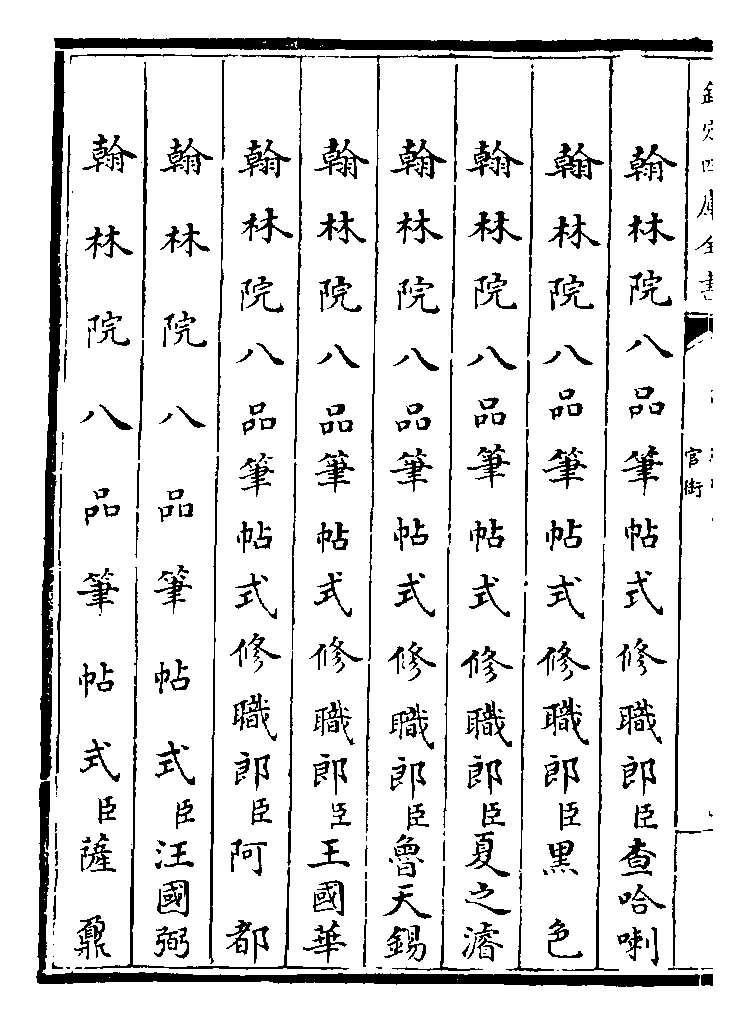 欽定四庫全書
官銜
翰林院八品筆帖式修職郎臣查哈喇
翰林院八品筆帖式修職郎臣黑色
翰林院八品筆帖式修職郎臣夏之濬
翰林院八品筆帖式修職郎臣魯天錫
翰林院八品筆帖式修職郎臣王國華
翰林院八品筆帖式修職郎臣阿都
翰林院八品筆帖式臣汪國弼
翰林院八品筆帖式臣薩鼐